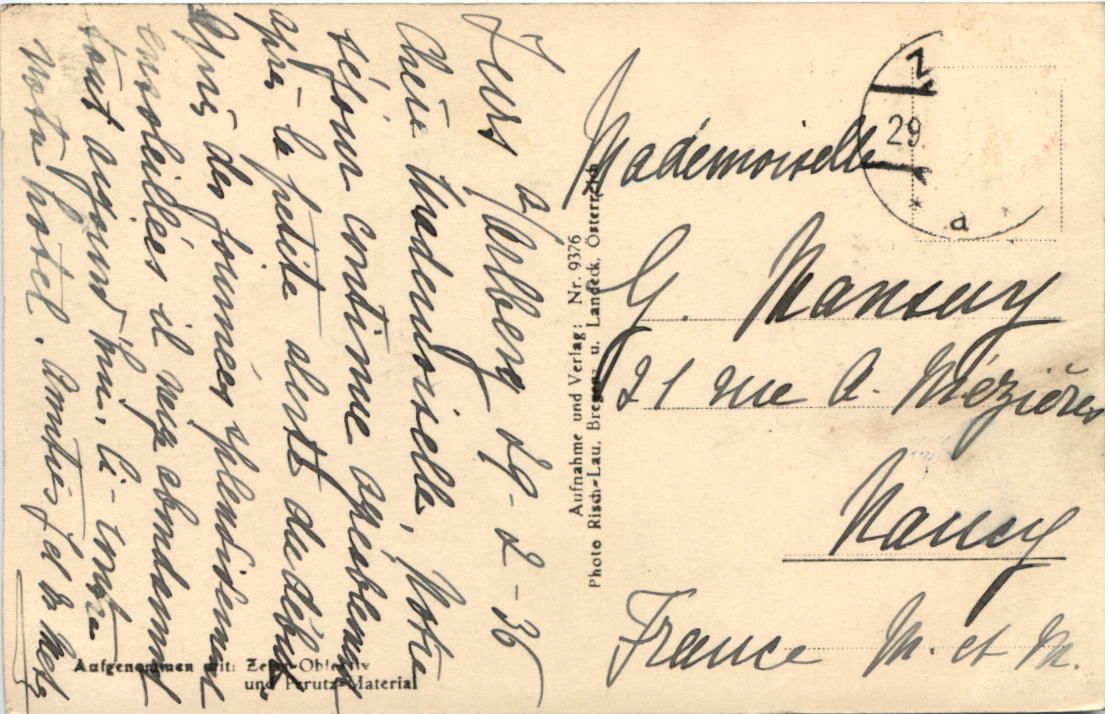 Zürs a/Arlberg 29-2-36
Chère Mademoiselle, Notre
séjour continue agréablement
après la petite alerte du début.
Après des journées splendidement
ensoleillées il neige abondamment
tout aujourd'hui. Ci-contre
notre hôtel. Amitiés
Mademoiselle
G. Mansuy
21 rue A. Mézières
Nancy
France M. et M.
Aufnahme und Verlag: Nr. 9376
Photo Risch-Lau, Bregenz u. Landeck, Österreich
Aufgenommen mit: Zeiss-Objektiv
und Perutz-Material
Z
29.
* a *